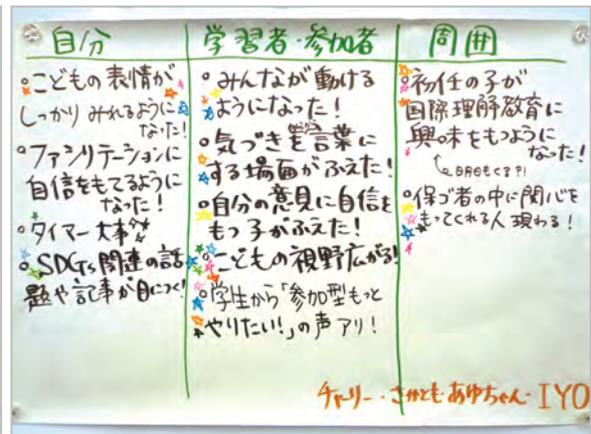 自分
・こどもの表情が
しっかりみれるように
なった!
・ファシリテーションに
自信をもてるように
なった!
・タイマー大事
・SDGs関連の話
題や記事が目につく!
学習者・参加者
・みんなが動ける
ようになった!
・気づきを言葉に
する場面がふえた!
・自分の意見に自信を
もつ子がふえた!
・こどもの視野広がる!
・学生から「参加型もっと
やりたい!」の声アリ!
周囲
・初任の子が
国際理解教育に
興味をもつように
なった!
明日もくる?!
・保ゴ者の中に関心を
もってくれる人現わる!
チャーリー・さかとも・あゆちゃん・IYO